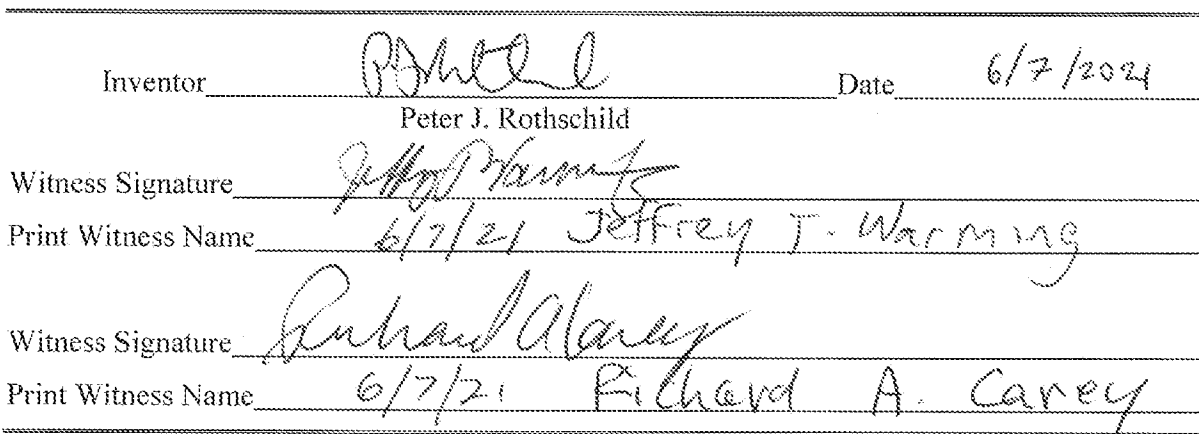 Inventor Date 6/7/2021
Peter J. Rothschild
Witness Signature
Print Witness Name 6/7/21 Jeffrey T. Warming
Witness Signature Richard A Carey
Print Witness Name 6/7/21 Richard A. Carey